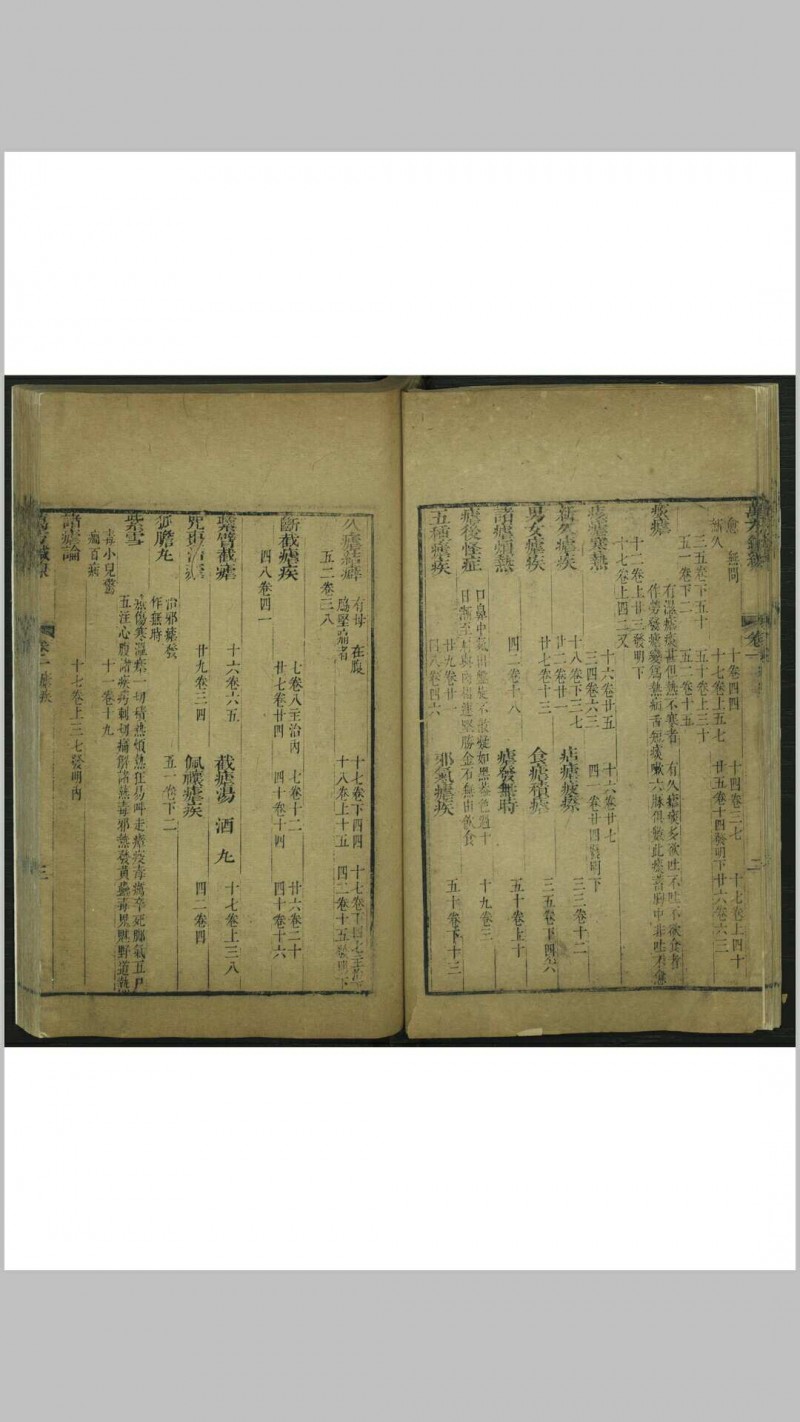 愈 無問
新久
十卷四四 十四卷三七 十七卷上四十
三五卷下五十 十七卷上五七 廿五卷十四發明下 廿六卷六三
五一卷下二 五十卷上三十
五二卷十五
痰瘧
有久瘧痰多欲吐不吐不欲食者
十二卷上廿三發明下
十七卷上四二又
痎瘧寒熱
十六卷廿五 十六卷廿七
三四卷六三 四一卷廿四發明下
新久瘧疾
十八卷下三七
廿二卷廿一
痁瘧疲瘵
三三卷十二
男女瘧疾
廿七卷十三
食瘧積瘧
三五卷下四六
諸瘧煩熱
四二卷十八
瘧發無時
五十卷上十
瘧後怪症
口鼻中氣出盤旋不散凝如黑蓋色過十
日漸至肩與肉相連堅勝金石無由飲食
十九卷三
五種瘧疾
廿九卷廿一
四八卷四六
邪氣瘧疾
五十卷下十三
久瘧結癖
有母 在腹
脇堅痛者
十七卷下四四
五二卷三八
十八卷上十五 四二卷十五發明下
斷截瘧疾
七卷八主治內 七卷十二 廿六卷三十
廿七卷廿四 四十卷十四 四十卷十六
四八卷四一
繫臂截瘧
十六卷六五
截瘧湯 酒 丸
十七卷上三八
呪棗治瘧
廿九卷三四
佩禳瘧疾
四二卷四
治邪瘧發
作無時
五一卷下二
紫雪
治傷寒溫瘧一切積熱煩熱狂易叫走瘴疫毒癘卒死腳氣五尸
五注心腹諸疾㽲刺切痛解諸熱毒邪熱發黃蠱毒鬼魅野道熱
毒小兒驚
癇百病
十一卷十九
諸瘧論
十七卷上三七發明內
三